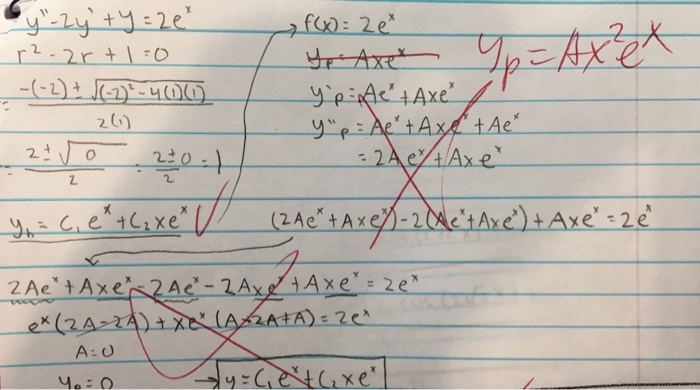 y"-2y'+y=2eˣ
r²-2r+1=0
-(-2)±√(-2)²-4(1)(1)
2(1)
= 2±√0 / 2 = 2±0 / 2 = 1
yₕ = C₁eˣ+C₂xeˣ
→ f(x) = 2eˣ
yₚ = Axeˣ
yₚ=Ax²eˣ
y'p = Aeˣ + Axeˣ
y"p = Aeˣ+Axeˣ+Aeˣ
= 2Aeˣ+Axeˣ
(2Aeˣ+Axeˣ)-2(Aeˣ+Axeˣ)+Axeˣ=2eˣ
2Aeˣ+Axeˣ-2Aeˣ-2Axeˣ+Axeˣ=2eˣ
eˣ(2A-2A)+xeˣ(A-2A+A)=2eˣ
A=0
yₚ=0
→ y=C₁eˣ+C₂xeˣ